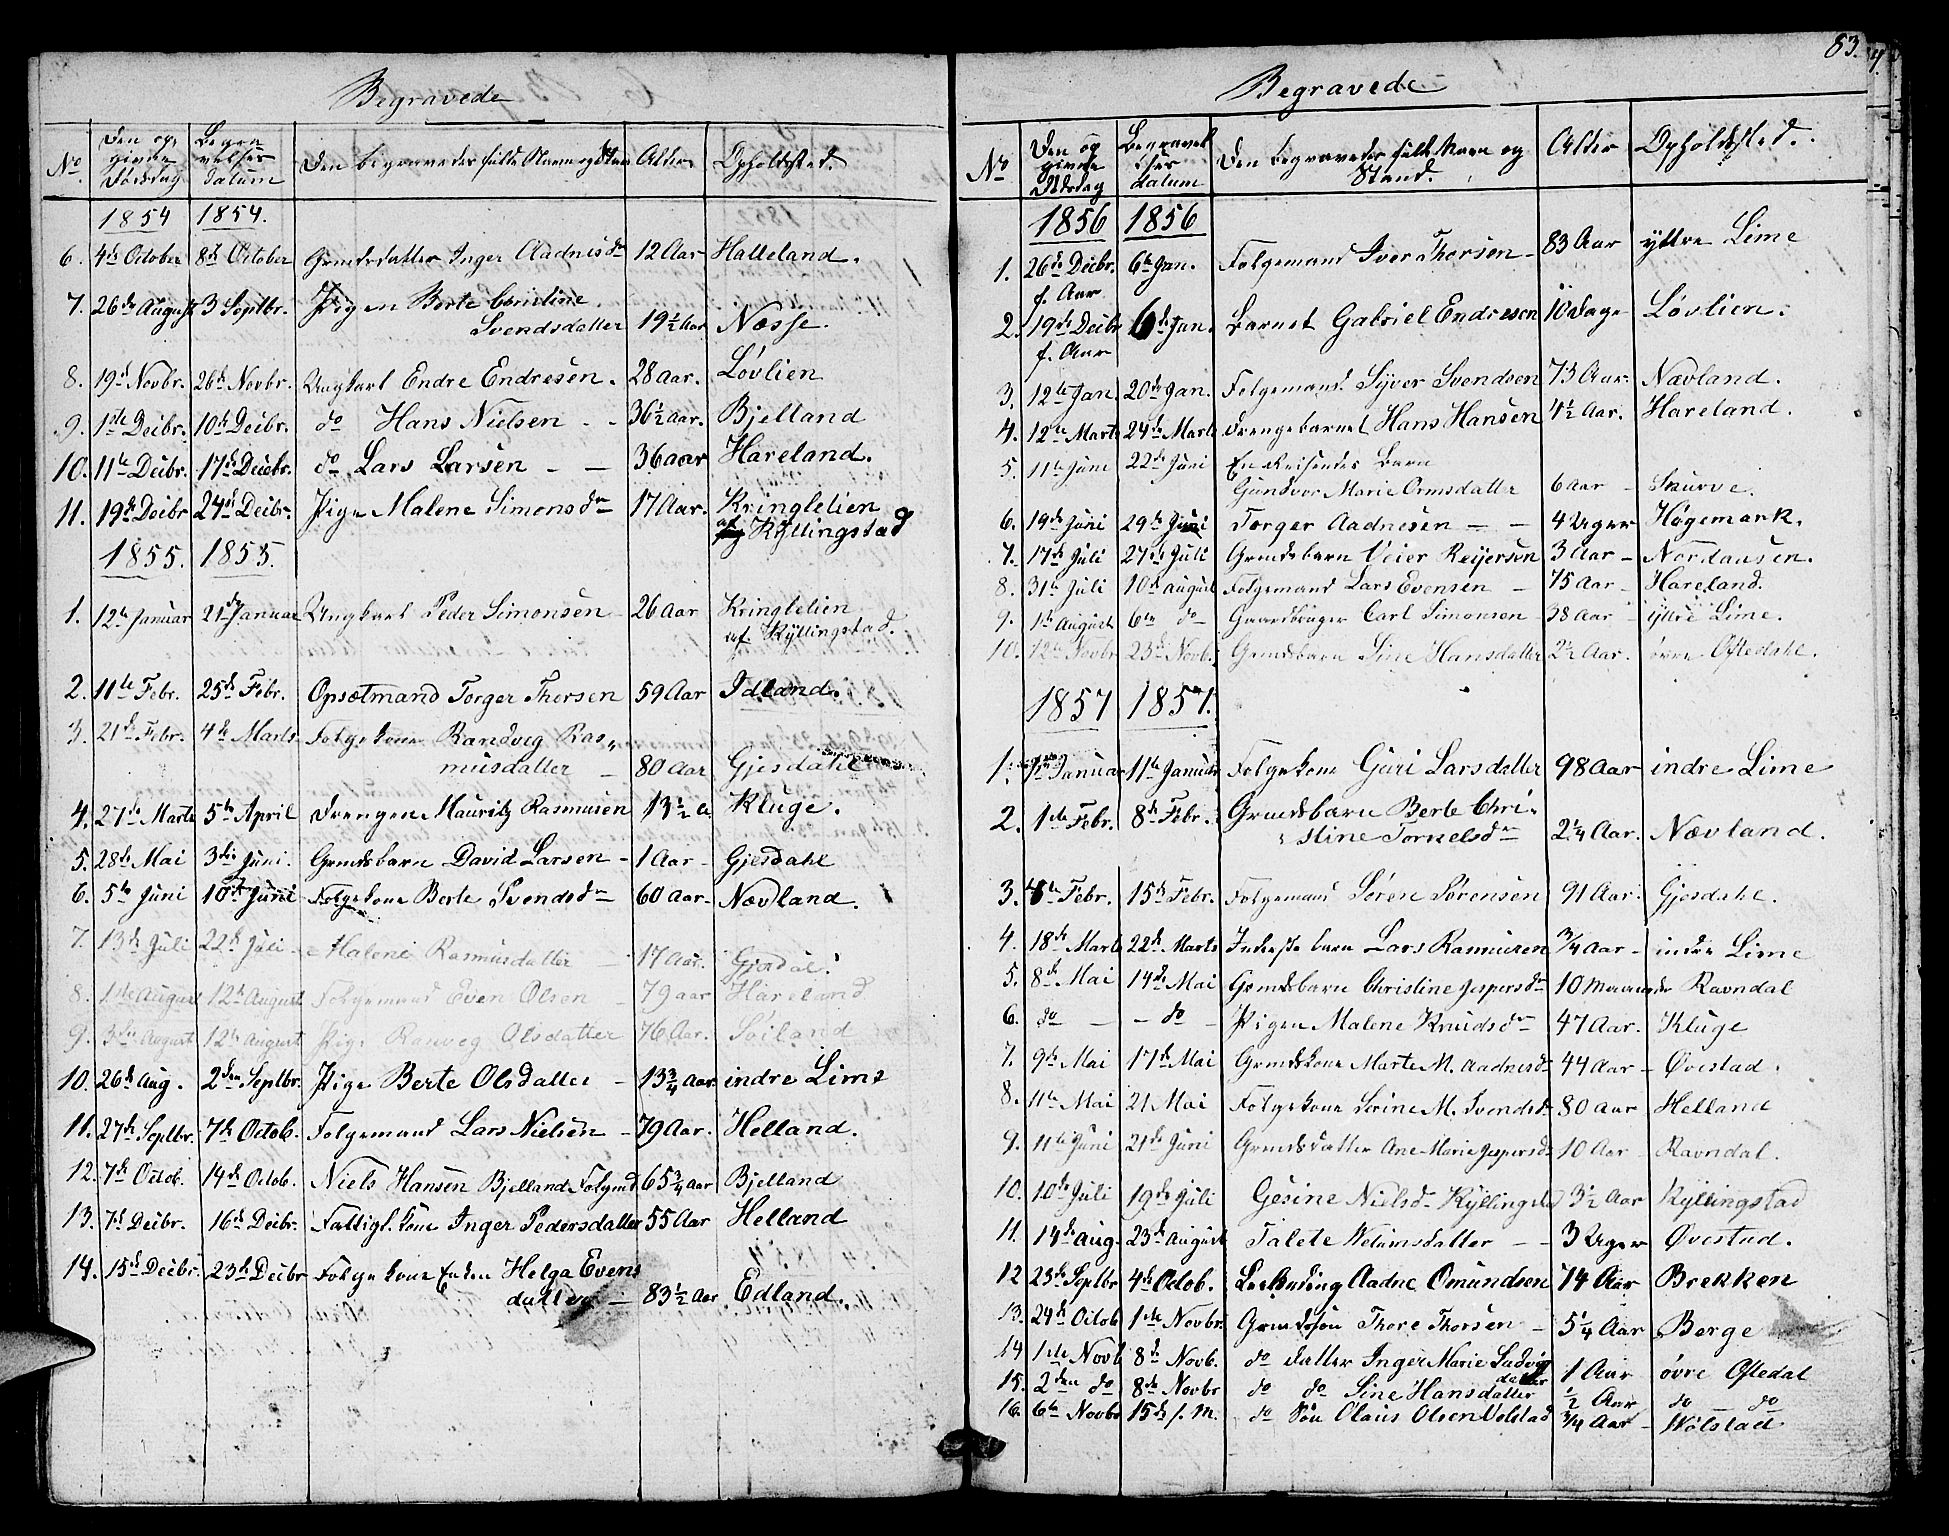 Begravede
No | Den op- givne Dødsdag | Begra- velses datum | Den begravedes fulde Navn og Stan | Alder | Opholdsted.
1854 | 1854.
6. | 4de October | 8de October | Gmdsdatter Inger Aadnesdr | 12 Aar | Halleland.
7. | 26de August | 3 Septbr. | Pigen Berte Corneline
Svendsdatter | 19½ Aar | Næsse.
8. | 19de Novbr. | 26de Novbr. | Ungkarl Endre Endresen. | 28 Aar. | Løvlien
9. | 1ste Decbr. | 10de Decbr. | do Hans Nielsen | 36½ Aar. | Bjelland
10. | 11te Decbr. | 17de Decbr. | do Lars Larsen | 36 aar | Hareland.
11. | 19de Decbr | 24de Decbr. | Pige Malene Simonsdr | 17 Aar. | Kringlelien
af Kyllingstad
1855. | 1855.
1. | 12te Januar | 21de Januar | Ungkarl Peder Simonsen | 26 Aar | Kringlelien
af Kyllingstad.
2. | 11te Febr. | 25de Febr. | Opsætmand Torger Thorsen | 59 Aar | Idland.
3. | 21de Febr. | 4de Marts | Folgekone Randveg Ras„
musdatter | 80 Aar | Gjesdahl
4. | 27de Marts | 5te April | Drengen Mauritz Rasmusen | 13½ a | Kluge.
5. | 28de Mai | 3die Juni. | Gmdsbarn David Larsen | 1 Aar | Gjesdahl
6. | 5te Juni | 10de Juni | Folgekone Berte Svendsdr | 60 Aar | Nævland.
7. | 13de Juli | 22de Juli | Malene Rasmusdatter | 17 Aar. | Gjesdal.
8. | 1ste August | 12te August | Folgemand Even Olsen | 79 aar | Hareland
9. | 3die August | 12te August | Pige Ranveg Olsdatter | 76 Aar. | Soiland
10. | 26de Aug. | 2den Septbr. | Pige Berte Olsdatter | 13¾ aar | indre Lime
11. | 27de Septbr. | 7de Octob. | Folgemand Lars Nielsen | 79 Aar. | Helland.
12. | 7de Octob. | 14de Octob. | Niels Hansen Bjelland Folgmd | 65¾ aar | Bjelland
13. | 7de Decbr. | 16de Decbr. | Fattigl. kone Inger Pedersdatter | 55 Aar | Helland
14. | 15de Decbr. | 23de Decbr | Folgekone Enken Helga Evens
datter | 83½ Aar | Edland.
83.
Begravede
No | Den op givne Dødsdag | Begravel ses datum | Den begravedes fulde Navn og Stand. | Alder | Opholdsted.
1856 | 1856
1. | 26de Decbr. f. Aar | 6te Jan. | Folgemand Iver Thorsen | 83 Aar | yttre Lime
2. | 19de Decbr f. Aar | 6te Jan. | Barnet Gabriel Endresen | 10 Dage | Løvlien.
3. | 12te Jan. | 20de Jan. | Folgemand Syver Svendsen | 73 Aar. | Nævland.
4. | 12te Marts | 24de Marts | Drengebarnet Hans Hansen | 4½ Aar. | Hareland.
5. | 11te Juni | 22de Juni | En Reisendes Barn
Gundvor Marie Ormsdatter | 6 Aar | Skurve.
6. | 19de Juni | 29de Juni | Torger Aadnesen | 4 Uger | Høgemork.
7. | 17de Juli | 27de Juli | Gmdsbarn Veier Reijersen | 3 Aar | Nordaasen.
8. | 31te Juli | 10de august | Folgemand Lars Evensen | 75 Aar | Hareland.
9. | 1ste August | 6te do | Gaardbruger Carl Simonsen | 38 Aar | yttre Lime.
10. | 12te Novbr | 23de Novb. | Gmdsbarn Sine Hansdatter | 2½ Aar. | øvre Oftedahl.
1857 | 1857.
1. | Januar | 11te Januar | Folgekone Guri Larsdatter | 98 Aar | indre Lime
2. | 1ste Febr. | 8de Febr. | Gmdsbarn Berte Chri-
stine Tornelsdr | 2¼ Aar. | Nævland.
3. | 4de Febr. | 15de Febr. | Folgemand Søren Sørensen | 91 Aar. | Gjesdahl.
4. | 18de Marts | 22de Marts | Inderste barn Lars Rasmusen | ¾ Aar | indre Lime
5. | 8de Mai | 14de Mai | Gmdsbarn Christine Jespersdr | 10 Maaneder | Ravndal
6. | do | do | Pigen Malene Knudsdr | 47 Aar. | Kluge
7. | 9de Mai | 17de Mai | Gmdskone Marte M. Aadnesdr | 44 Aar | Øvestad.
8. | 11te Mai | 21 Mai | Folgekone Serine M. Svendsdr | 80 aar | Helland
9. | 11te Juni | 21de Juni | Gmdsdatter Ane Marie Jespersdr | 10 Aar | Ravndal.
10. | 10de Juli | 19de Juli | Gesine Nielsdr Kyllingstad | 3½ Aar | Kyllingstad
11. | 14de aug. | 23de August | Talete Welumsdatter | 3 Uger | Øvestad.
12 | 23de Septbr | 4de Octob. | Aadne Omundsen | 74 Aar | Brekken
13. | 24de Octob | 1ste Novbr. | Gmdssøn Thore Thorsen | 5¼ Aar | Berge
14 | 1ste Novb | 8de Novb. | do datter Inger Marie Ludvigs
datter | 1 Aar | øvre Oftedal
15. | 2den do | 8de Novbr | do do Sine Hansdatter | ½ Aar | do do
16. | 6te Novbr | 15de f. M. | do Søn Olaus Olsen Wolstad | ¾ Aar | Wølstad